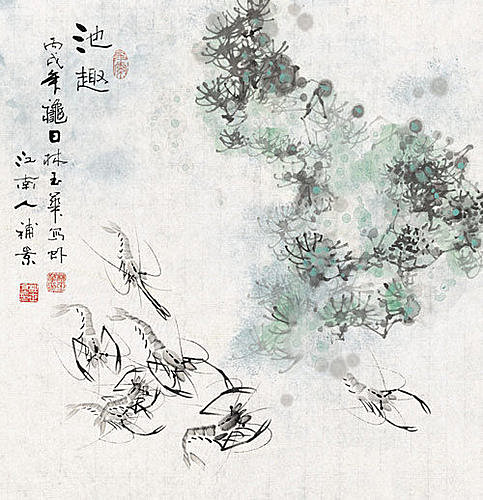 池趣
丙戌年龝日林玉華写虾
江南人補景